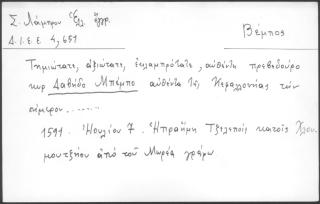 Σ. Λάμπρου Ἑλλ. ἔγγρ.
Δ.Ι.Ε.Ε 4, 651
Βέμπος
Τιμιώτατε, ἀξιώτατε, ἐκλαμπρότατε, αὐθέντη πρεβεδοῦρο
κυρ Δαβῆδο Μπέμπο αὐθέντα τῆς Κεφαλλονίας τὴν
σήμερον.......
1591. Ἰουλίου 7. Ἠμπραήμη Τζελεπούς κατοῖς Χλου-
μουτζίου ἀπό τοῦ Μωρέα γράφω